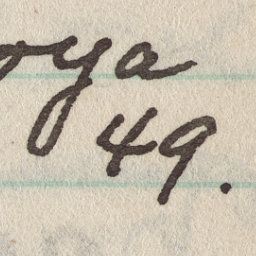 oya
49.